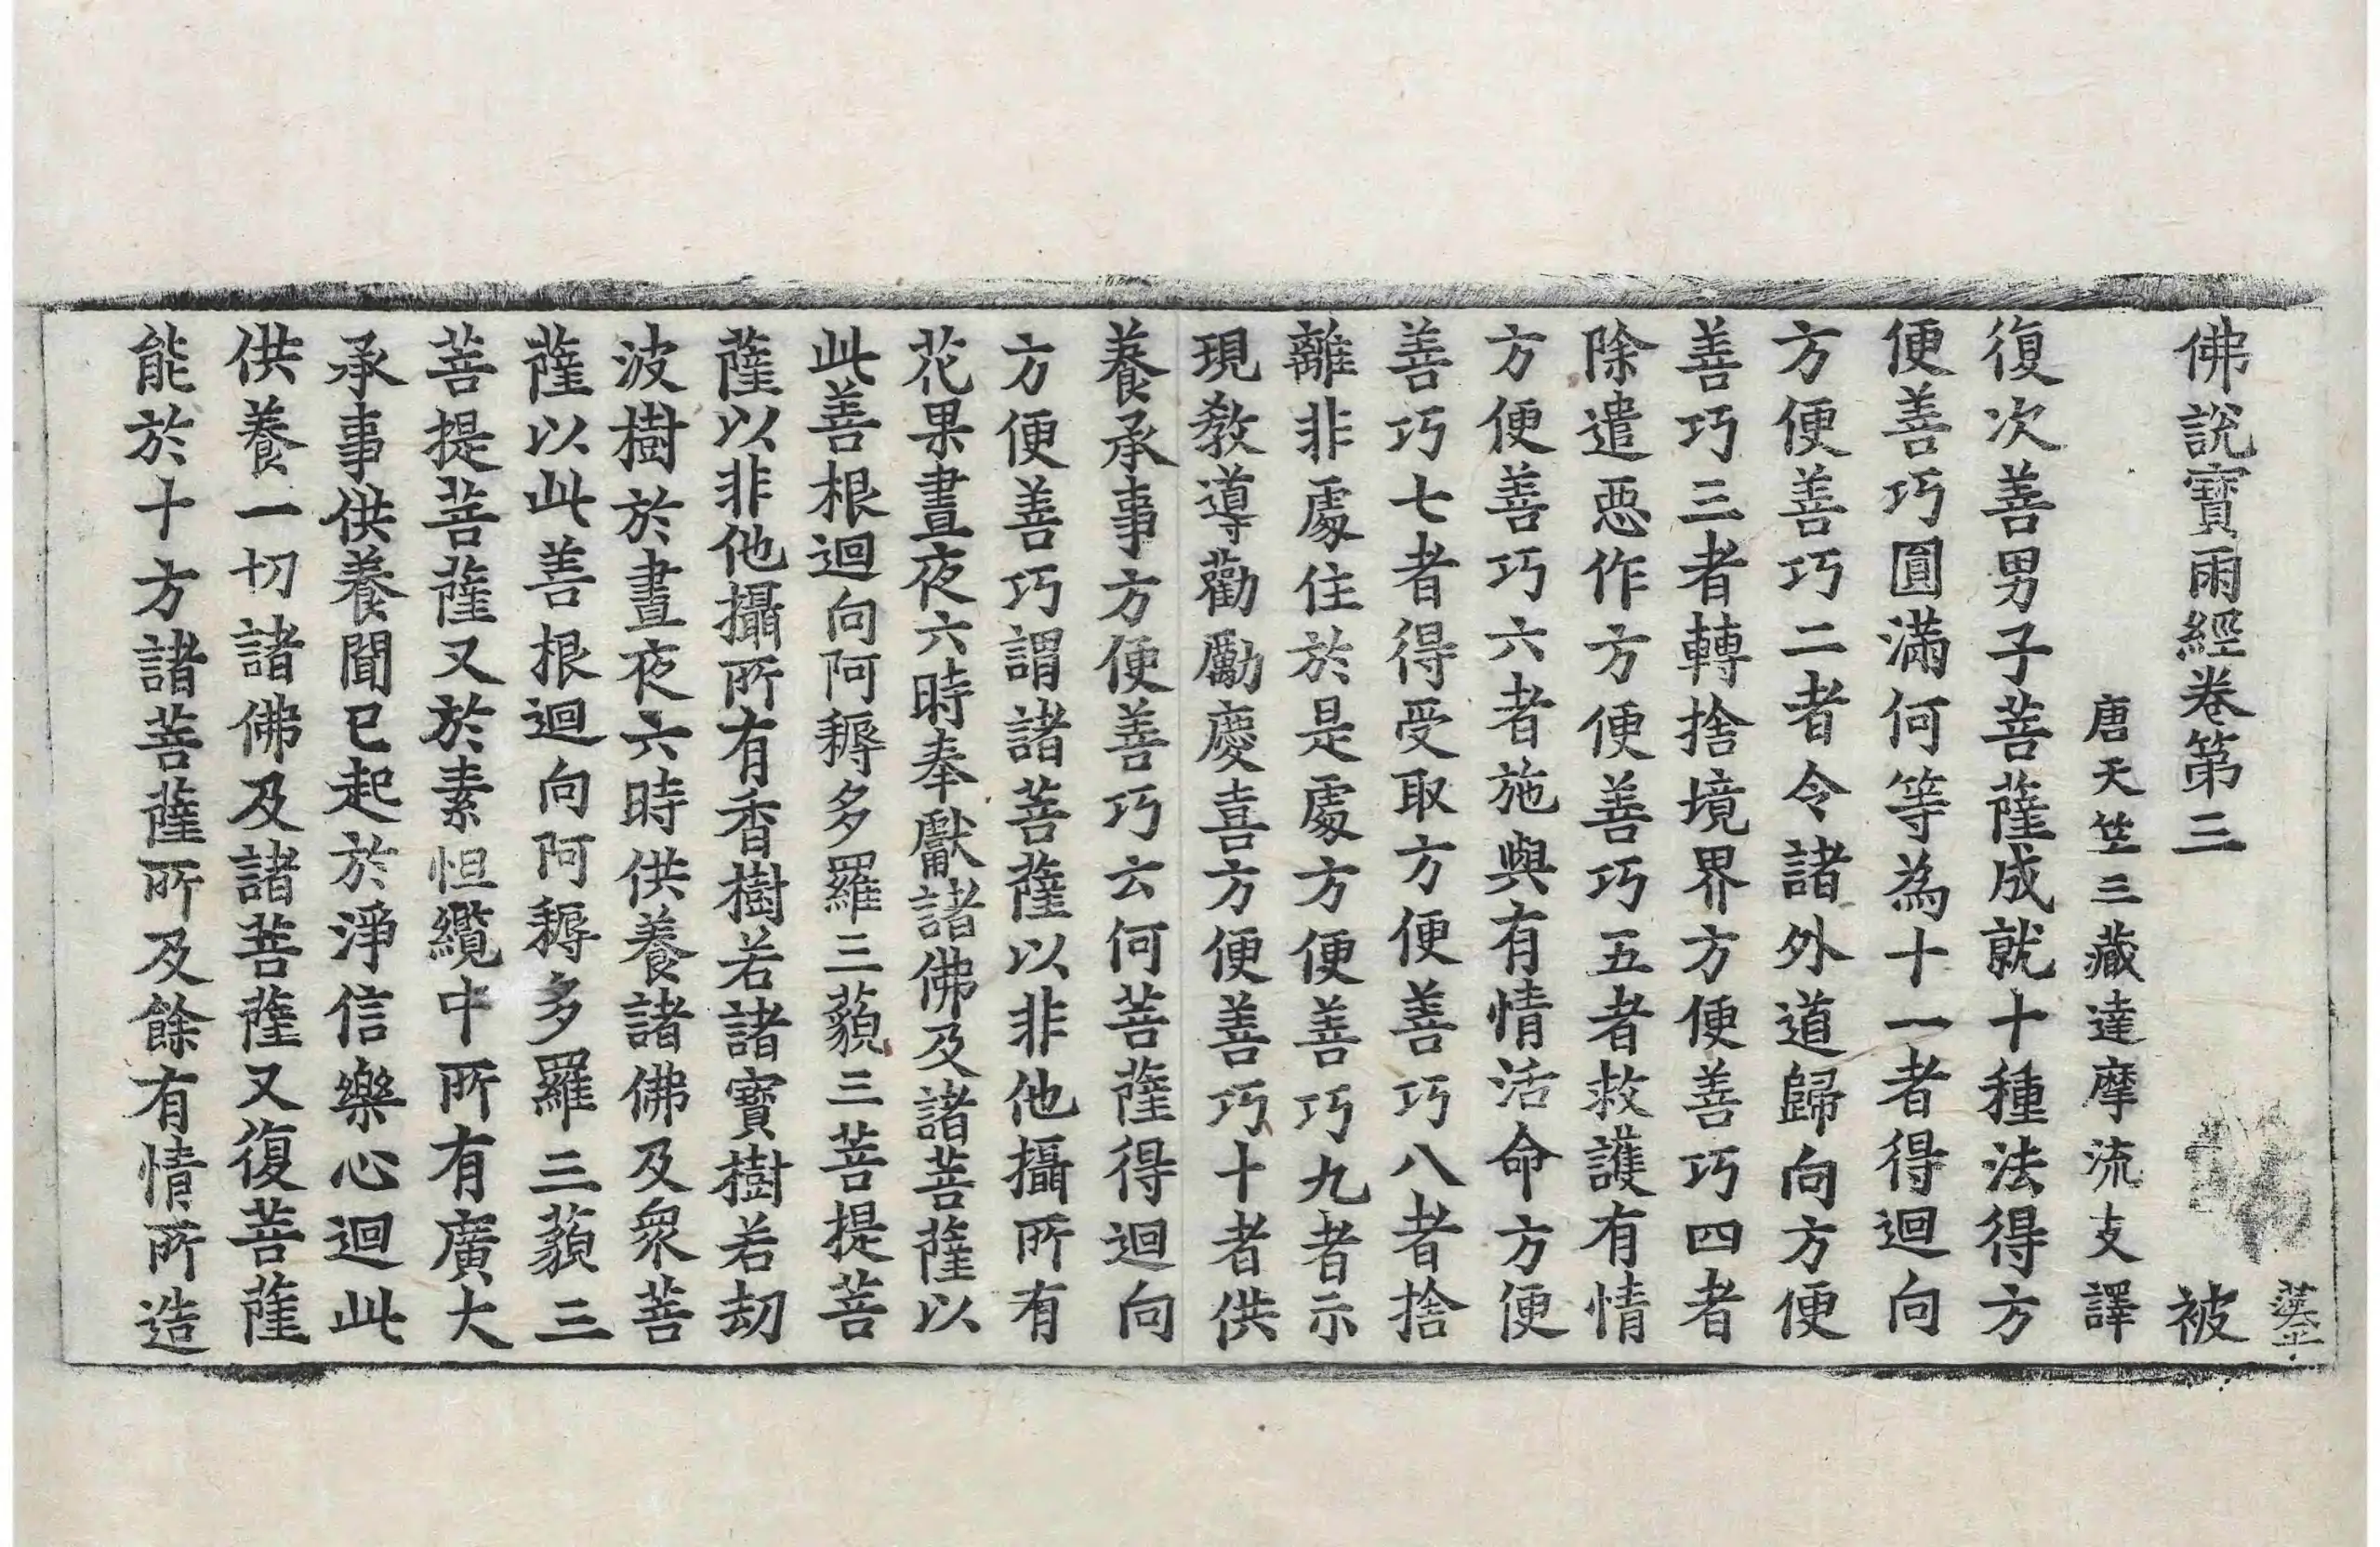 佛說寶雨經卷第三 被
唐天竺三藏達摩流支譯
復次善男子菩薩成就十種法得方
便善巧圓滿何等為十一者得迴向
方便善巧二者令諸外道歸向方便
善巧三者轉捨境界方便善巧四者
除遣惡作方便善巧五者救護有情
方便善巧六者施與有情活命方便
善巧七者得受取方便善巧八者捨
離非處住於是處方便善巧九者示
現教導勸勵慶喜方便善巧十者供
養承事方便善巧云何菩薩得迴向
方便善巧謂諸菩薩以非他攝所有
花果晝夜六時奉獻諸佛及諸菩薩以
此善根迴向阿耨多羅三藐三菩提菩
薩以非他攝所有香樹若諸寶樹若劫
波樹於晝夜六時供養諸佛及眾菩
薩以此善根迴向阿耨多羅三藐三
菩提菩薩又於素怛纜中所有廣大
承事供養聞已起於淨信樂心迴此
供養一切諸佛及諸菩薩又復菩薩
能於十方諸菩薩所及餘有情所造